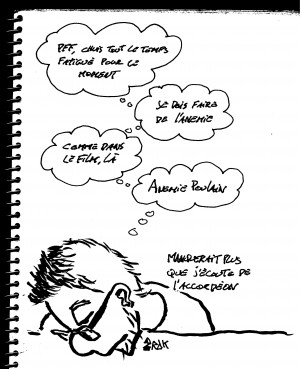 PFF, CHUIS TOUT LE TEMPS
FATIGUÉ POUR LE
MOMENT
JE DOIS FAIRE
DE L'ANEMIE
COMME DANS
LE FILM, LÀ
ANEMIE POULAIN
MANQUERAIT PLUS
QUE J'ÉCOUTE DE
L'ACCORDÉON